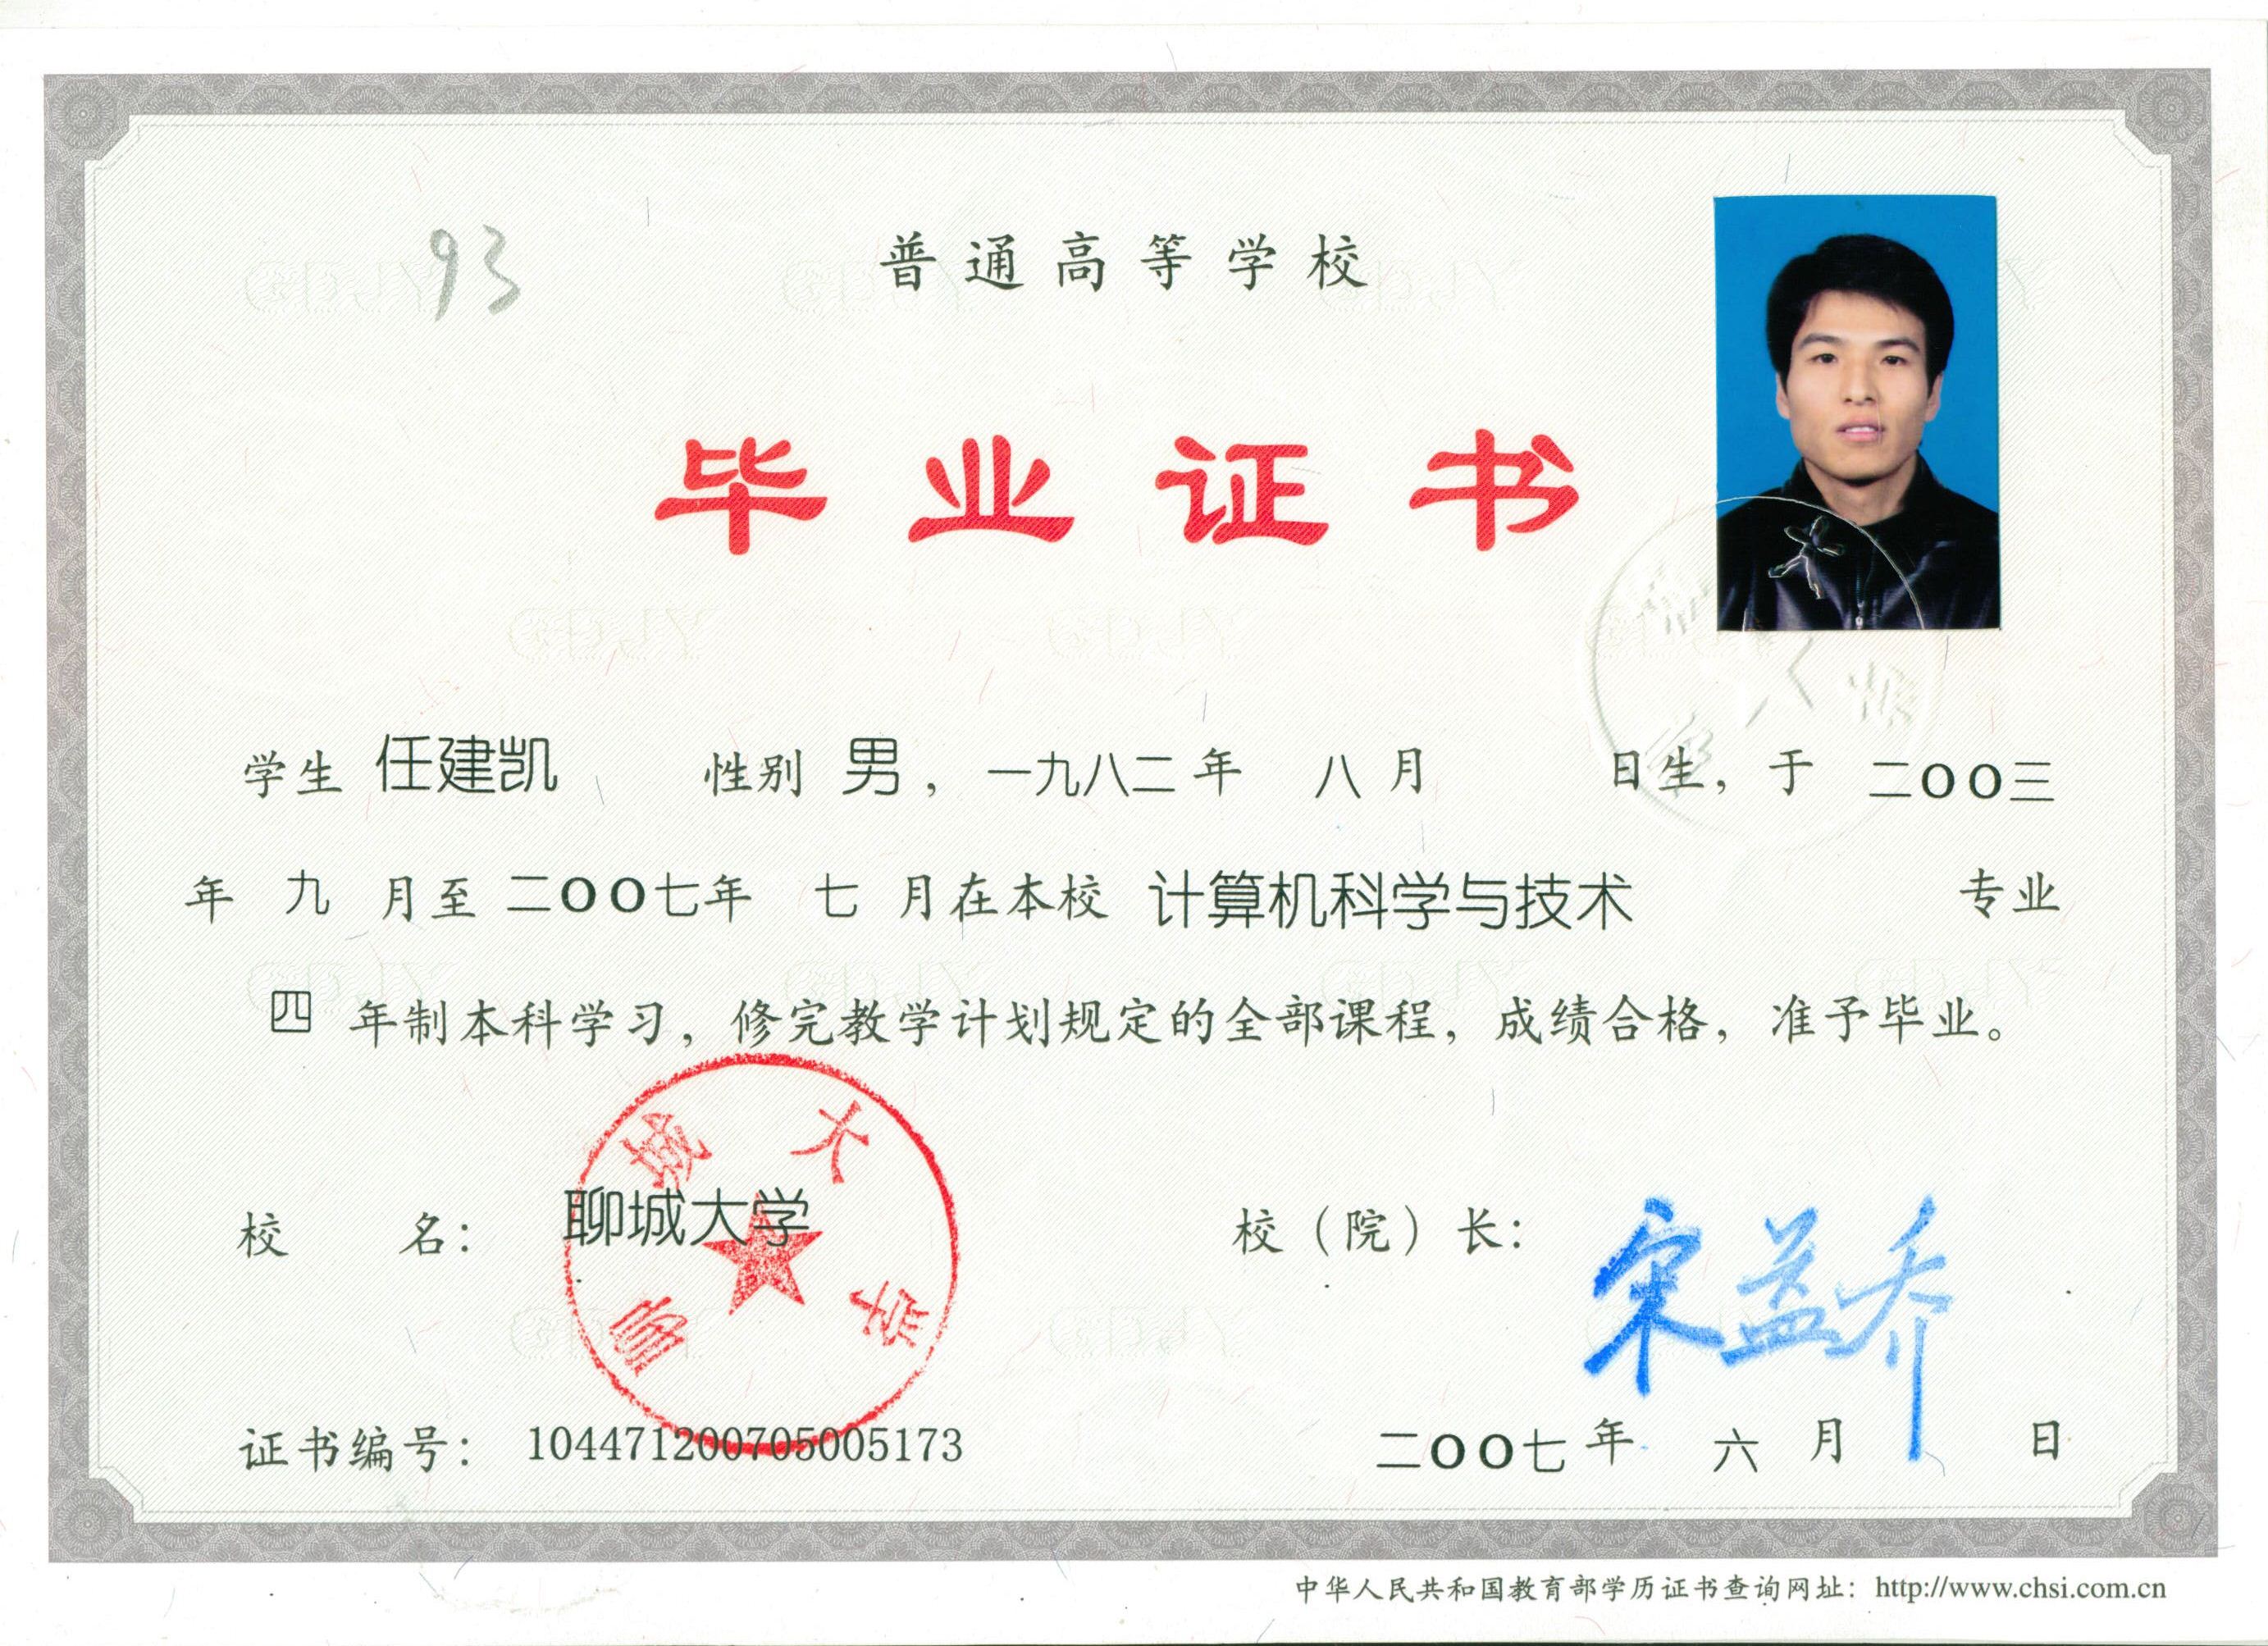 93
普通高等学校
毕业证书
学生 任建凯 性别 男，一九八二年 八月 日生，于 二〇〇三
年 九 月至 二〇〇七年 七 月在本校 计算机科学与技术 专业
四 年制本科学习，修完教学计划规定的全部课程，成绩合格，准予毕业。
聊城大学
校 名： 聊城大学
校（院）长： 宋益乔
证书编号： 104471200705005173
二〇〇七年 六 月 日
中华人民共和国教育部学历证书查询网址：http://www.chsi.com.cn